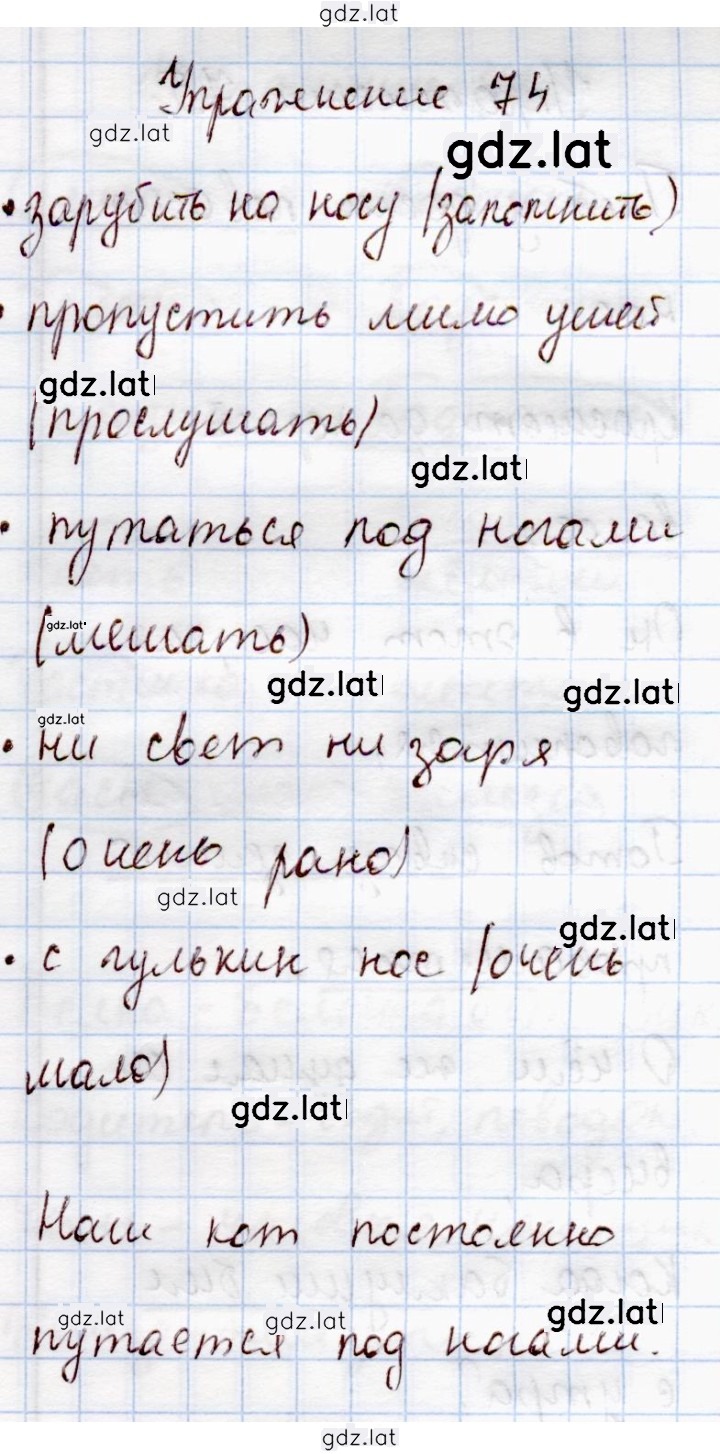 gdz.lat
Упражнение 74
gdz.lat
gdz.lat
• зарубить на носу (запомнить)
• пропустить мимо ушей
gdz.lat
(прослушать)
gdz.lat
• путаться под ногами
gdz.lat
(мешать)
gdz.lat
gdz.lat
gdz.lat
• ни свет ни заря
(очень рано)
gdz.lat
gdz.lat
• с гулькин нос (очень
мало)
gdz.lat
Наш кот постоянно
gdz.lat
gdz.lat
gdz.lat
путается под ногами.
gdz.lat